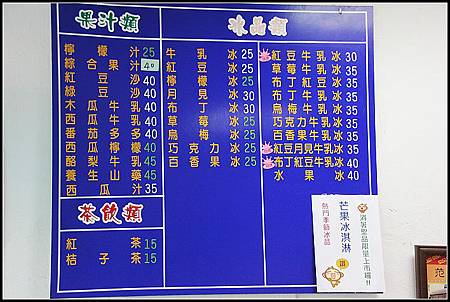 果汁類
檸檬汁25
綜合果汁40
紅豆沙40
綠豆沙40
木瓜牛乳40
西瓜牛乳40
番茄多多40
西瓜多多
酪梨牛乳45
養生山藥45
西瓜汁35
茶飲類
紅茶15
桔子茶15
冰品類
牛乳冰25
紅豆冰25
檸檬冰25
月見冰25
布丁冰25
草莓冰25
烏梅冰25
巧克力冰25
百香果冰25
紅豆牛乳冰30
草莓牛乳冰35
布丁牛乳冰35
布丁
烏梅牛乳冰35
巧克力牛乳冰35
百香果牛乳冰35
紅豆月見冰
紅豆布丁牛乳冰40
水果冰40
消暑聖品限量上市囉!!
芒果冰淇淋
熱門季節冰品
范